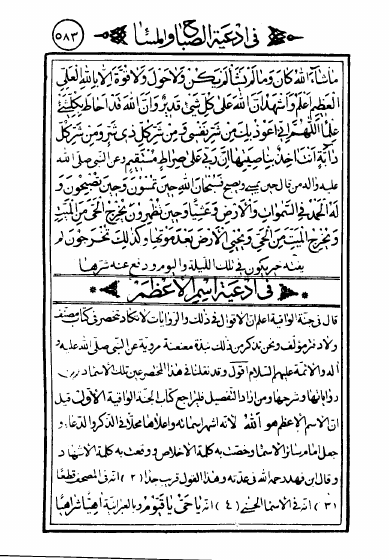 في ادعية الصباح والمسا
٥٨٣
ماشآء الله كان ومالم يشأ لم يكن ولا حول ولا قوة الا بالله العلي
العظيم اعلم واشهد ان الله على كل شئ قدير وان الله قد احاط بكل شئ
علما اللهم اني اعوذ بك من شر نفسي ومن شر كل ذي شر ومن شر كل
دابة انت اخذ بناصيتها ان ربي على صراط مستقيم وعن النبي صلى الله
عليه واله من قال حين يمسي ويصبح سبحان الله حين تمسون وحين تصبحون و
له الحمد في السموات والارض وعشيا وحين تظهرون يخرج الحي من الميت
ويخرج الميت من الحي ويحيي الارض بعد موتها وكذلك تخرجون لم
يفته خير يكون في تلك الليلة واليوم ودفع عنه شرها
في ادعية اسم الاعظم
قال في جنة الواقية اعلم ان الاقوال في ذلك والروايات لا تكاد تنحصر في كتاب مصنف
ولا دفتر مؤلف ونحن نذكر من ذلك نبذة مقنعة مروية عن النبي صلى الله عليه و
آله والائمة عليهم السلام اقول وقد نقلنا في هذا المختصر عين تلك الاسماء دون
رواياتها وشرحها ومن اراد التفصيل فليراجع كتاب الجنة الواقية الاول قيل
ان الاسم الاعظم هو الله لانه اشهر اسمائه واعلاها محلا في الذكر والدعاء و
جعل امام سائر الاسماء وخصت به كلمة الاخلاص ووقعت به كلمة الاشهاد
وقال ابن فهد رحمه الله في عدته وهذا القول قريب جدا (٢) انه في المصحف قطعا
(٣) انه في الاسماء الحسنى (٤) انه يا حي يا قيوم وبالعبرانية اهيا شراهيا